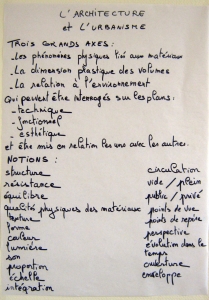 L'ARCHITECTURE
et L'URBANISME
TROIS GRANDS AXES :
- Les phénomènes physiques lié aux matériaux
- La dimension plastique des volumes
- La relation à l'environnement
Qui peuvent être interrogés sur les plans :
- technique
- fonctionnel
- esthétique
et être mis en relation les uns avec les autres.
NOTIONS :
structure
résistance
équilibre
qualité physiques des matériaux
texture
forme
couleur
lumière
son
proportion
échelle
intégration
circulation
vide / plein
public / privé
points de vue
points de repère
perspective
évolution dans le
temps
ouverture
enveloppe